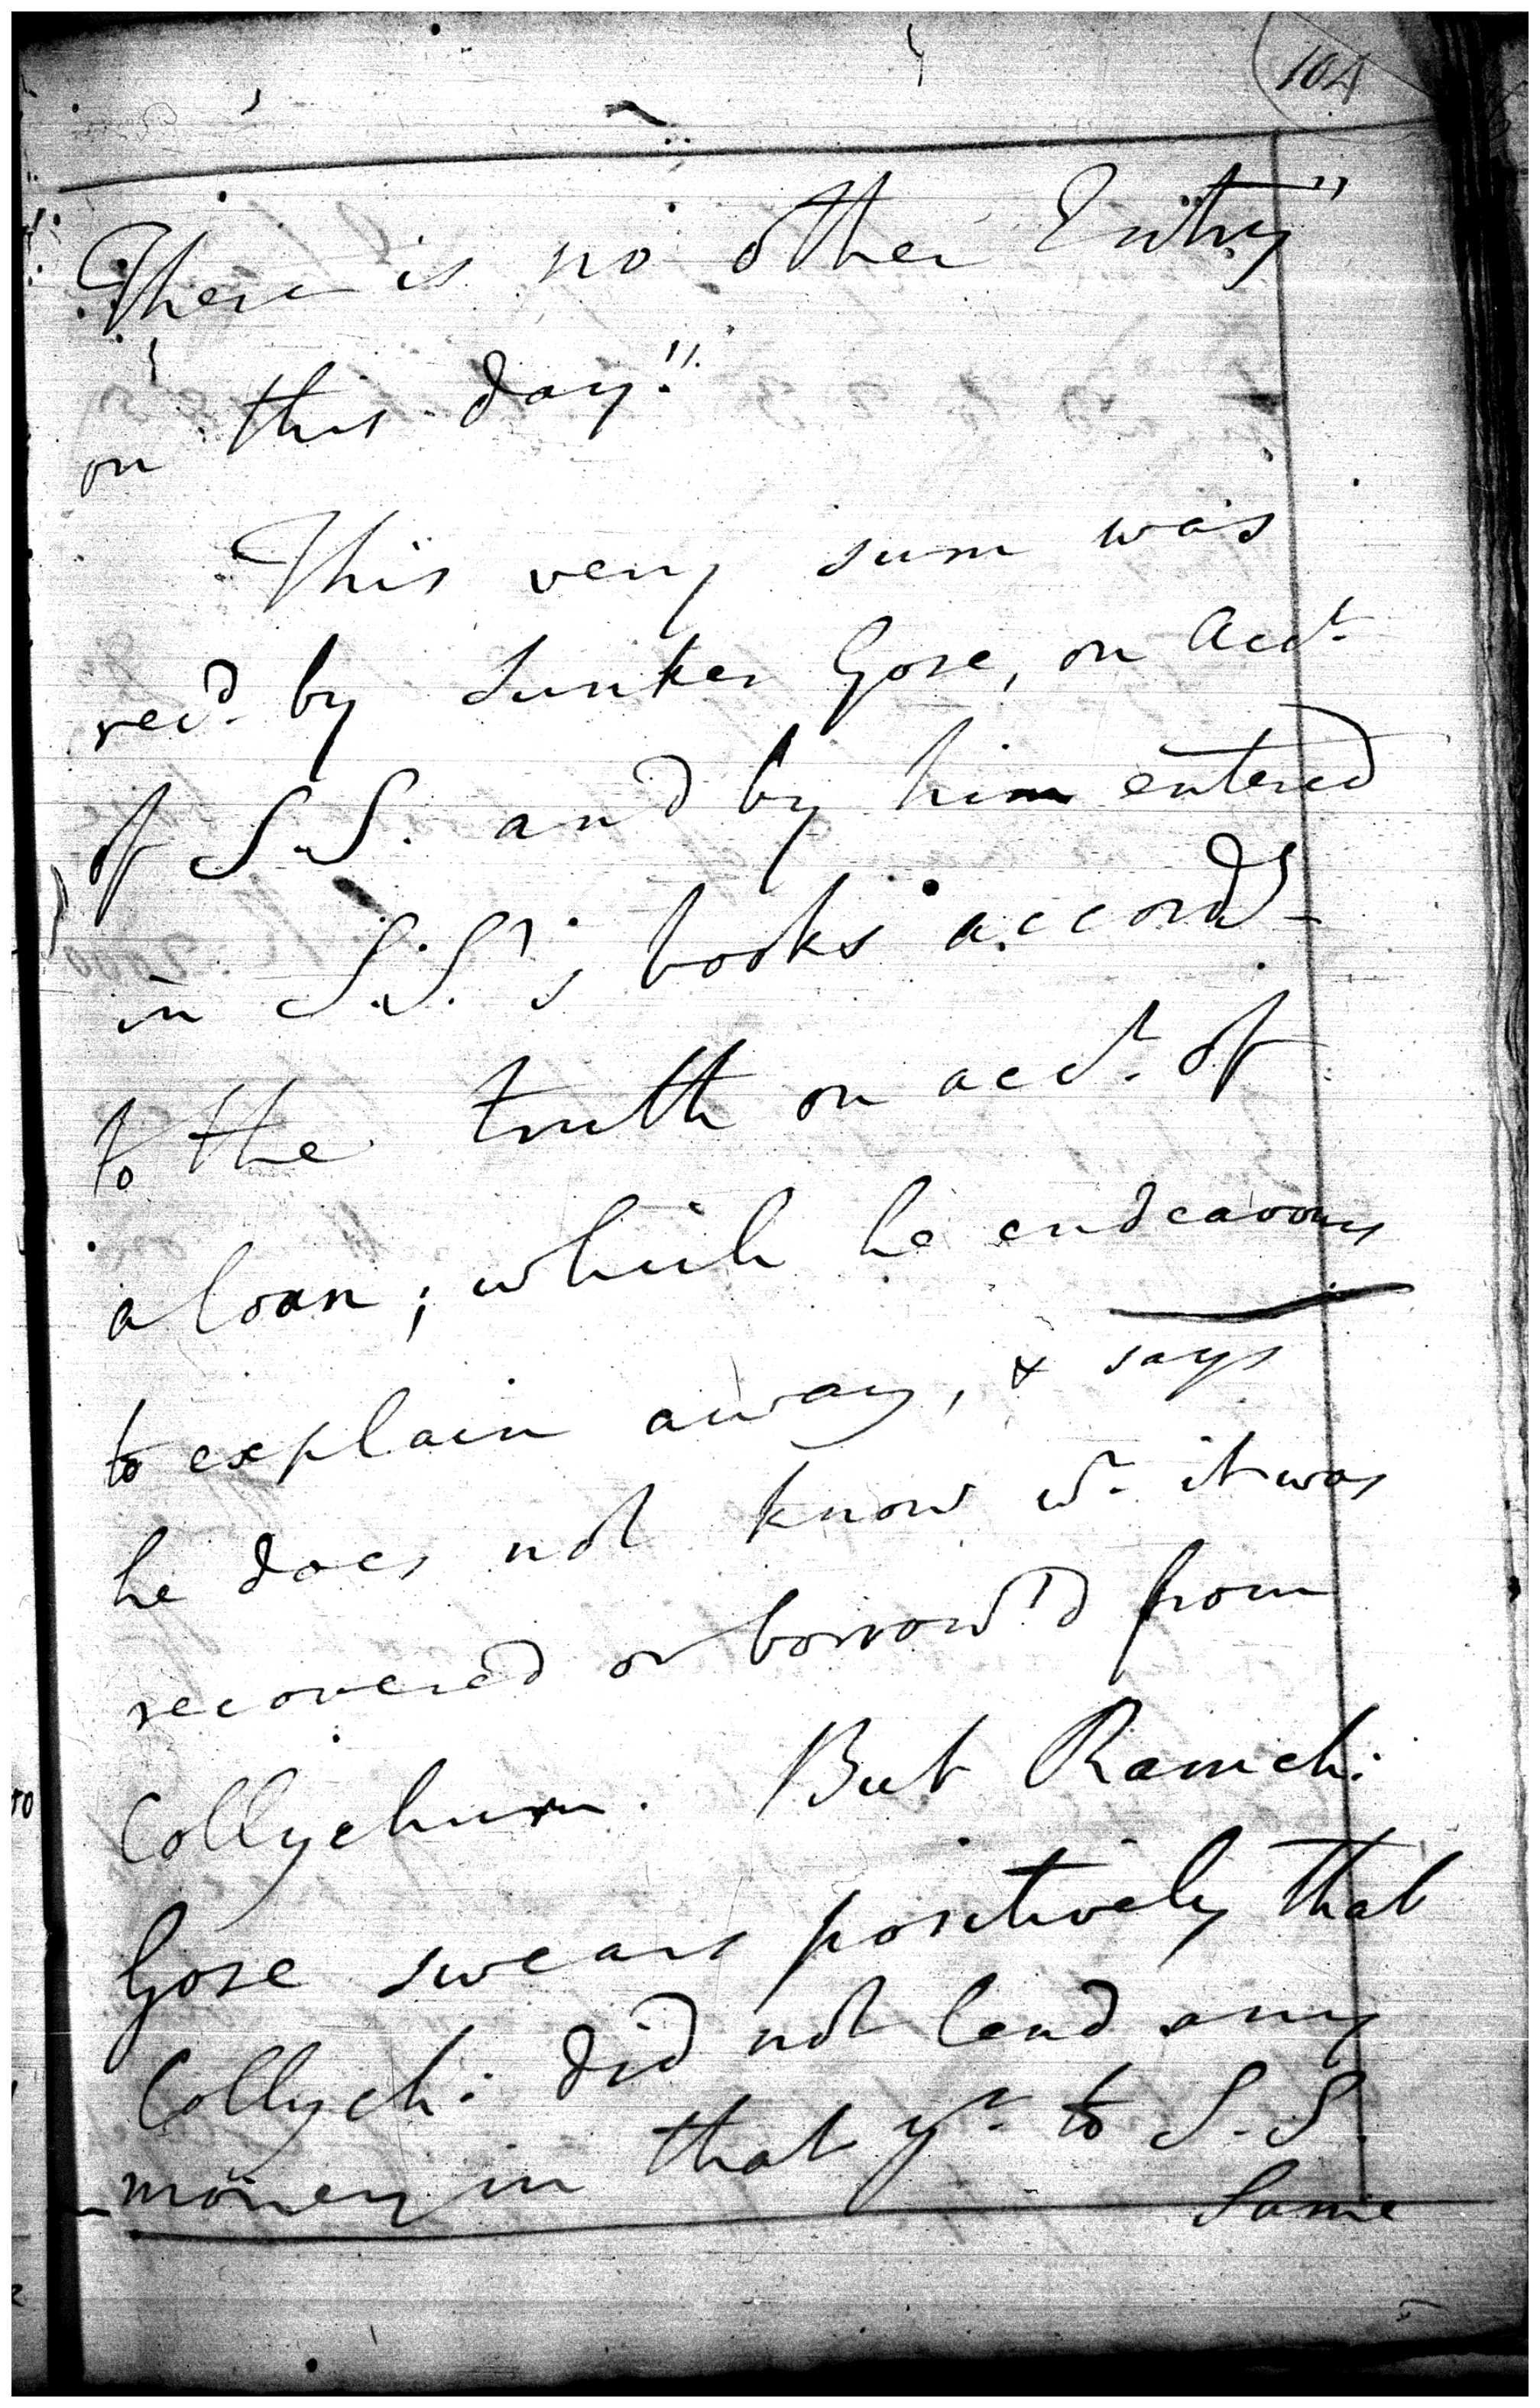 104
There is no other Entry"
on this day."
This very sum was
rec.d by Sunker Gose, on Acct.
of S.S. and by him entered
in S.S.'s books accord.g
to the truth on acct. of
a loan; which he endeavours
to explain away, & says
he does not know wr. it was
recovered or borrow'd from
Collychurn. But Ramch:
Gose swears positively that
Collych: did not lend any
money in that yr. to S.S.
Same